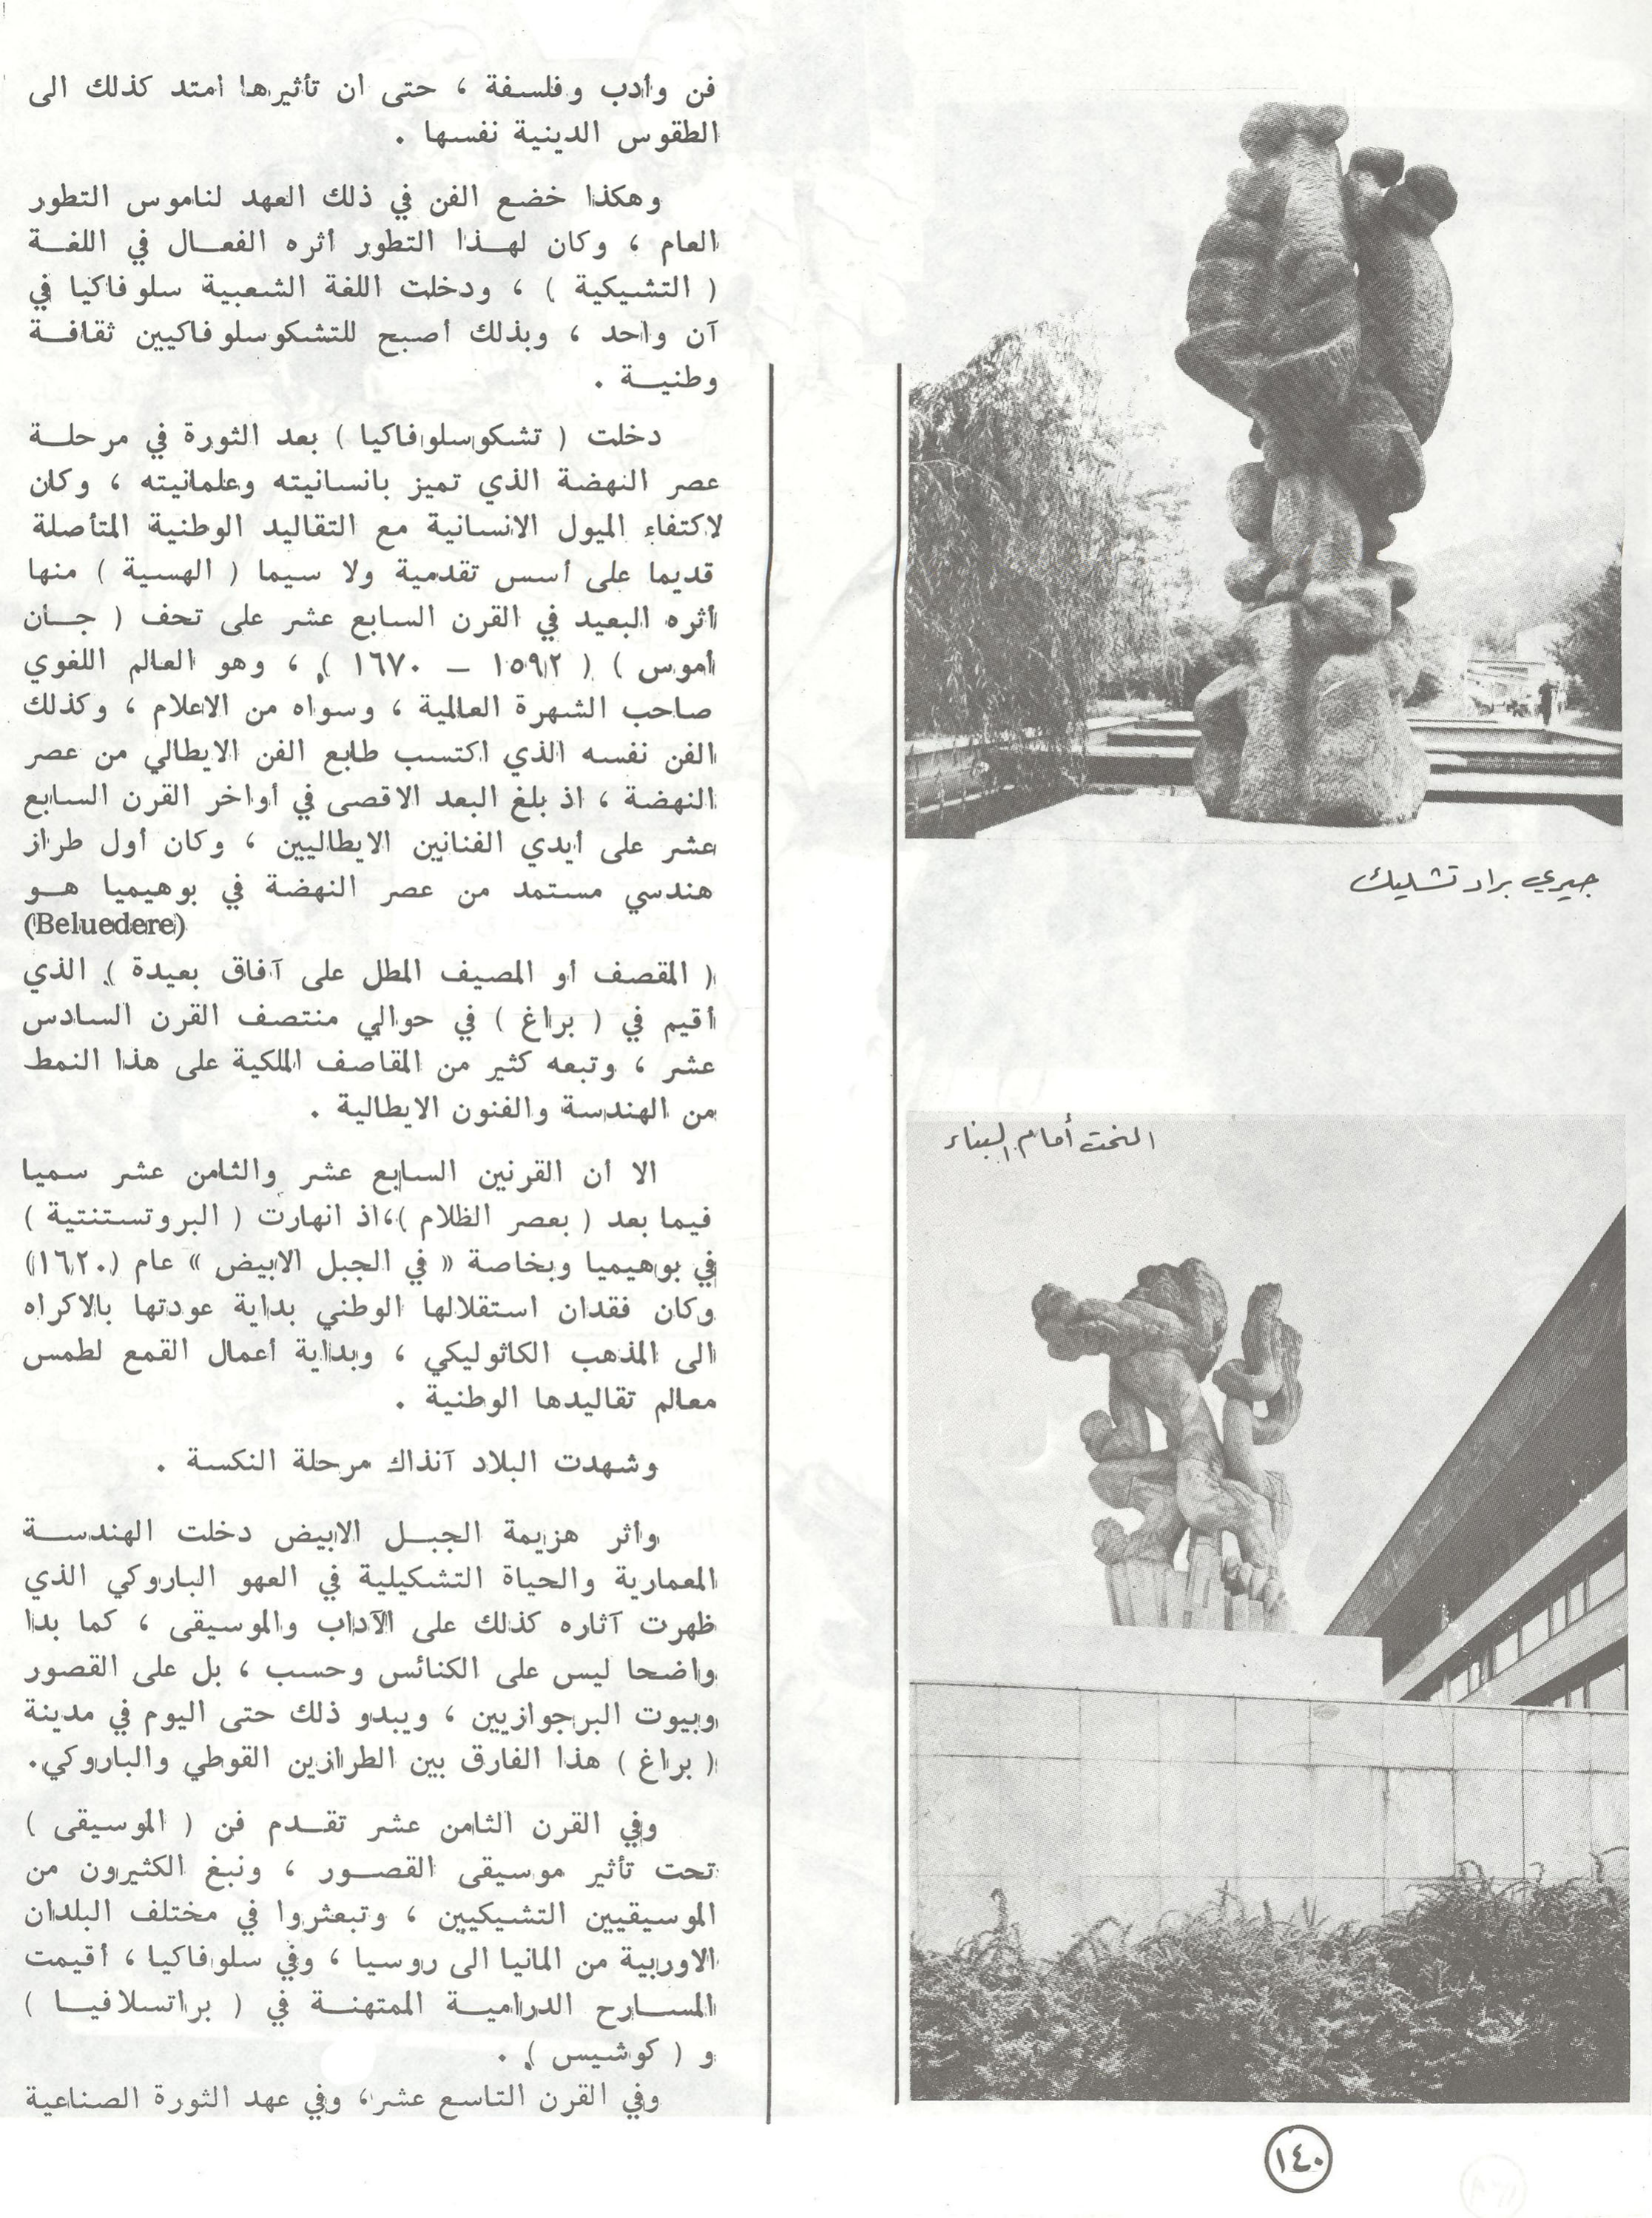 جيري براد تشليك
النحت أمام البناء
فن وأدب وفلسفة ، حتى ان تأثيرها امتد كذلك الى
الطقوس الدينية نفسها .
وهكذا خضع الفن في ذلك العهد لناموس التطور
العام ، وكان لهــذا التطور أثره الفعــال في اللغــة
( التشيكية ) ، ودخلت اللغة الشعبية سلوفاكيا في
آن واحد ، وبذلك أصبح للتشكوسلوفاكيين ثقافــة
وطنيــة .
دخلت ( تشكوسلوفاكيا ) بعد الثورة في مرحلــة
عصر النهضة الذي تميز بانسانيته وعلمانيته ، وكان
لاكتفاء الميول الانسانية مع التقاليد الوطنية المتأصلة
قديما على أسس تقدمية ولا سيما ( الهسية ) منها
أثره البعيد في القرن السابع عشر على تحف ( جــان
أموس ) ( ١٥٩٢ – ١٦٧٠ ) ، وهو العالم اللغوي
صاحب الشهرة العالمية ، وسواه من الاعلام ، وكذلك
الفن نفسه الذي اكتسب طابع الفن الايطالي من عصر
النهضة ، اذ بلغ البعد الاقصى في أواخر القرن السابع
عشر على أيدي الفنانين الايطاليين ، وكان أول طراز
هندسي مستمد من عصر النهضة في بوهيميا هــو
(Beluedere)
( المقصف أو المصيف المطل على آفاق بعيدة ) الذي
أقيم في ( براغ ) في حوالي منتصف القرن السادس
عشر ، وتبعه كثير من المقاصف الملكية على هذا النمط
من الهندسة والفنون الايطالية .
الا أن القرنين السابع عشر والثامن عشر سميا
فيما بعد ( بعصر الظلام )،اذ انهارت ( البروتستنتية )
في بوهيميا وبخاصة « في الجبل الابيض » عام (١٦٢٠)
وكان فقدان استقلالها الوطني بداية عودتها بالاكراه
الى المذهب الكاثوليكي ، وبداية أعمال القمع لطمس
معالم تقاليدها الوطنية .
وشهدت البلاد آنذاك مرحلة النكسة .
واثر هزيمة الجبــل الابيض دخلت الهندســة
المعمارية والحياة التشكيلية في العهو الباروكي الذي
ظهرت آثاره كذلك على الآداب والموسيقى ، كما بدا
واضحا ليس على الكنائس وحسب ، بل على القصور
وبيوت البرجوازيين ، ويبدو ذلك حتى اليوم في مدينة
( براغ ) هذا الفارق بين الطرازين القوطي والباروكي.
وفي القرن الثامن عشر تقــدم فن ( الموسيقى )
تحت تأثير موسيقى القصــور ، ونبغ الكثيرون من
الموسيقيين التشيكيين ، وتبعثروا في مختلف البلدان
الاوربية من المانيا الى روسيا ، وفي سلوفاكيا ، أقيمت
المســارح الدراميــة الممتهنــة في ( براتسلافيــا )
و ( كوشيس ) .
وفي القرن التاسع عشر، وفي عهد الثورة الصناعية
١٤٠